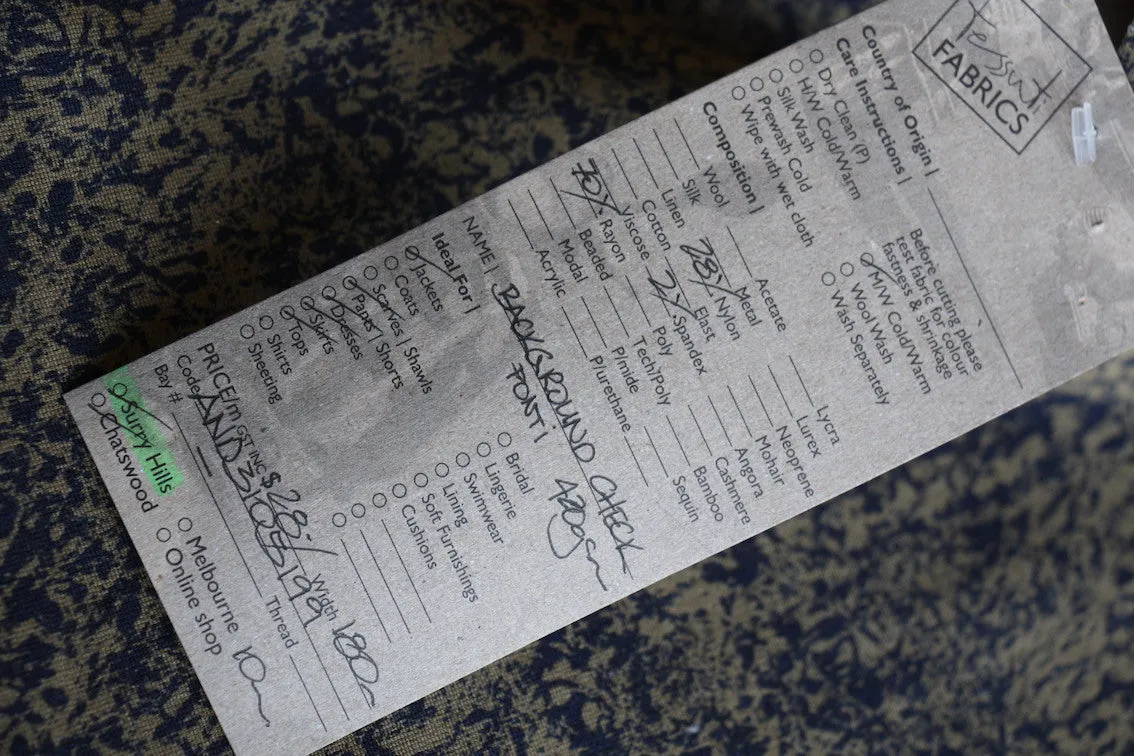 Tessuti
FABRICS
Country of Origin |
Care Instructions |
Dry Clean (P)
H/W Cold/Warm
Silk Wash
Prewash Cold
Wipe with wet cloth
Before cutting please
test fabric for colour
fastness & shrinkage
M/W Cold/Warm
Wool Wash
Wash Separately
Composition |
Wool
Silk
Linen
Cotton
Viscose
70% Rayon
Beaded
Modal
Acrylic
Acetate
Metal
28% Nylon
East
2% Spandex
Poly
Tech/Poly
P/mide
P/urethane
Lycra
Lurex
Neoprene
Mohair
Angora
Cashmere
Bamboo
Sequin
NAME | BACKGROUND CHECK
PONTI 420gsm
Ideal For |
Jackets
Coats
Scarves | Shawls
Pants | Shorts
Dresses
Skirts
Tops
Shirts
Sheeting
Bridal
Lingerie
Swimwear
Lining
Soft Furnishings
Cushions
PRICE/m GST INC $28.- Width 180
Code
Bay # Thread
Surry Hills
Chatswood
Melbourne
Online shop
10m